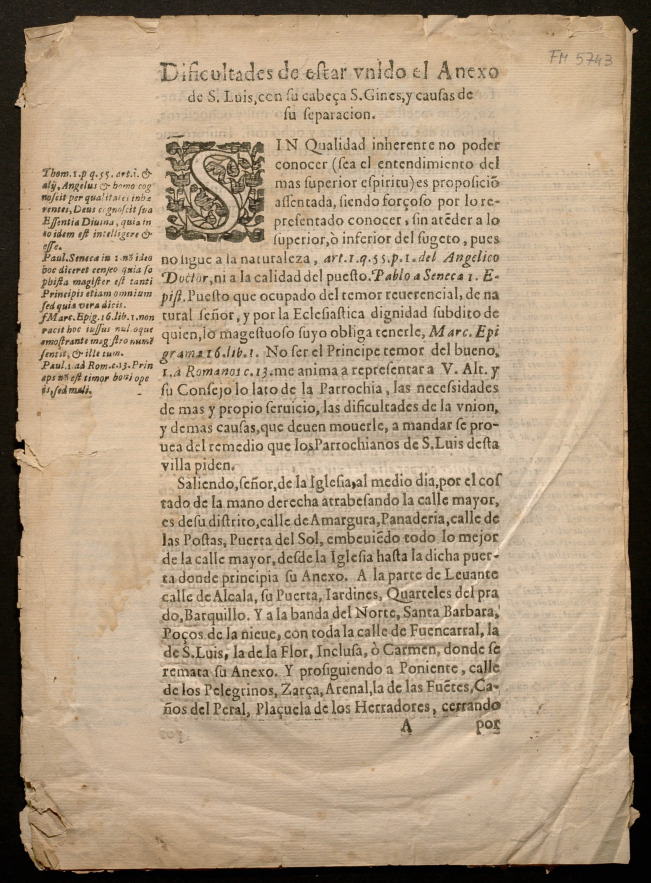 FM 5743
Dificultades de estar vnido el Anexo
de S. Luis, con su cabeça S. Gines, y causas de
su separacion.
SIN Qualidad inherente no poder
conocer (sea el entendimiento del
mas superior espiritu) es proposiciō
assentada, siendo forçoso por lo re-
presentado conocer, sin atēder a lo
superior, ò inferior del sugeto, pues
no ligue a la naturaleza, art. 1. q. 55. p. 1. del Angelico
Doctor, ni a la calidad del puesto. Pablo a Seneca 1. E-
pist. Puesto que ocupado del temor reuerencial, de na
tural señor, y por la Eclesiastica dignidad subdito de
quien, lo magestuoso suyo obliga tenerle, Marc. Epi
grama 16. lib. 1. No ser el Principe temor del bueno,
1. a Romanos c. 13. me anima a representar a V. Alt. y
su Consejo lo lato de la Parrochia, las necessidades
de mas y propio seruicio, las dificultades de la vnion,
y demas causas, que deuen mouerle, a mandar se pro-
uea del remedio que los Parrochianos de S. Luis desta
villa piden.
Saliendo, señor, de la Iglesia, al medio dia, por el cos
tado de la mano derecha atrabesando la calle mayor,
es de su distrito, calle de Amargura, Panaderia, calle de
las Postas, Puerta del Sol, embeuiēdo todo lo mejor
de la calle mayor, desde la Iglesia hasta la dicha puer-
ta donde principia su Anexo. A la parte de Leuante
calle de Alcala, su Puerta, Iardines, Quarteles del pra
do, Barquillo. Y a la banda del Norte, Santa Barbara,
Poços de la nieue, con toda la calle de Fuencarral, la
de S. Luis, la de la Flor, Inclusa, ò Carmen, donde se
remata su Anexo. Y prosiguiendo a Poniente, calle
de los Pelegrinos, Zarça, Arenal, la de las Fuētes, Ca-
ños del Peral, Plaçuela de los Herradores, cerrando
A por
Thom. 1. p q. 55. art. i. &
alij, Angelus & homo cog
noscit per qualitates inhæ
rentes, Deus cognoscit sua
Essentia Diuina, quia in
eo idem est intelligere &
esse.
Paul. Seneca in 1. nō ideo
hoc diceret censeo quia so
phista magister est tanti
Principis etiam omnium
sed quia vera dicis.
Marc. Epig. 16. lib. 1. non
facit hoc iussus nul oque
mostrante mag stro numē
sentit, & ille tum.
Paul. 1. ad Rom. c. 13. Prin
ceps nō est timor boni ope
ris, sed mali.